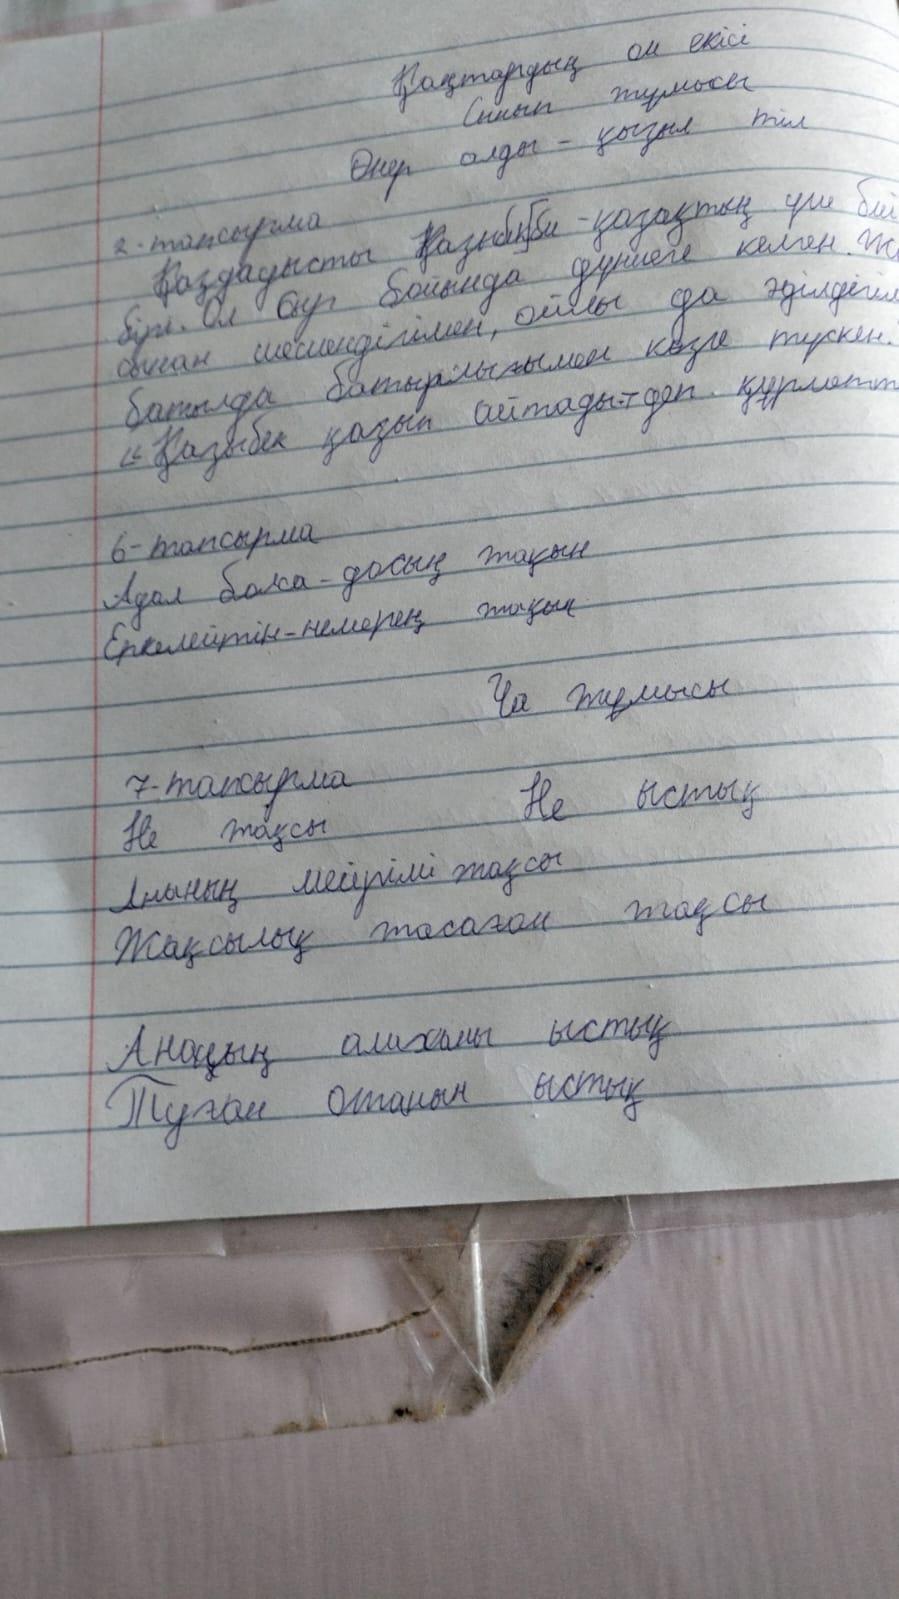 Қаңтардың он екісі
Сынып жұмысы
Өнер алды - қызыл тіл
2-тапсырма
Қаздауысты Қазыбек би - қазақтың үш биі
бірі. Ол Сыр бойында дүниеге келген.
шешендігімен, ойлы да әділдігі
батылда батырлығымен көзге түскен.
"Қазыбек қазып айтады" деп құрмет
6-тапсырма
Адал болса - досың жақын
Еркелейтін - немерең жақын
Үй жұмысы
7-тапсырма
Не жақсы Не ыстық
Ананың мейрімі жақсы
Жақсылық жасаған жақсы
Анаңың алақаны ыстық
Туған отанын ыстық